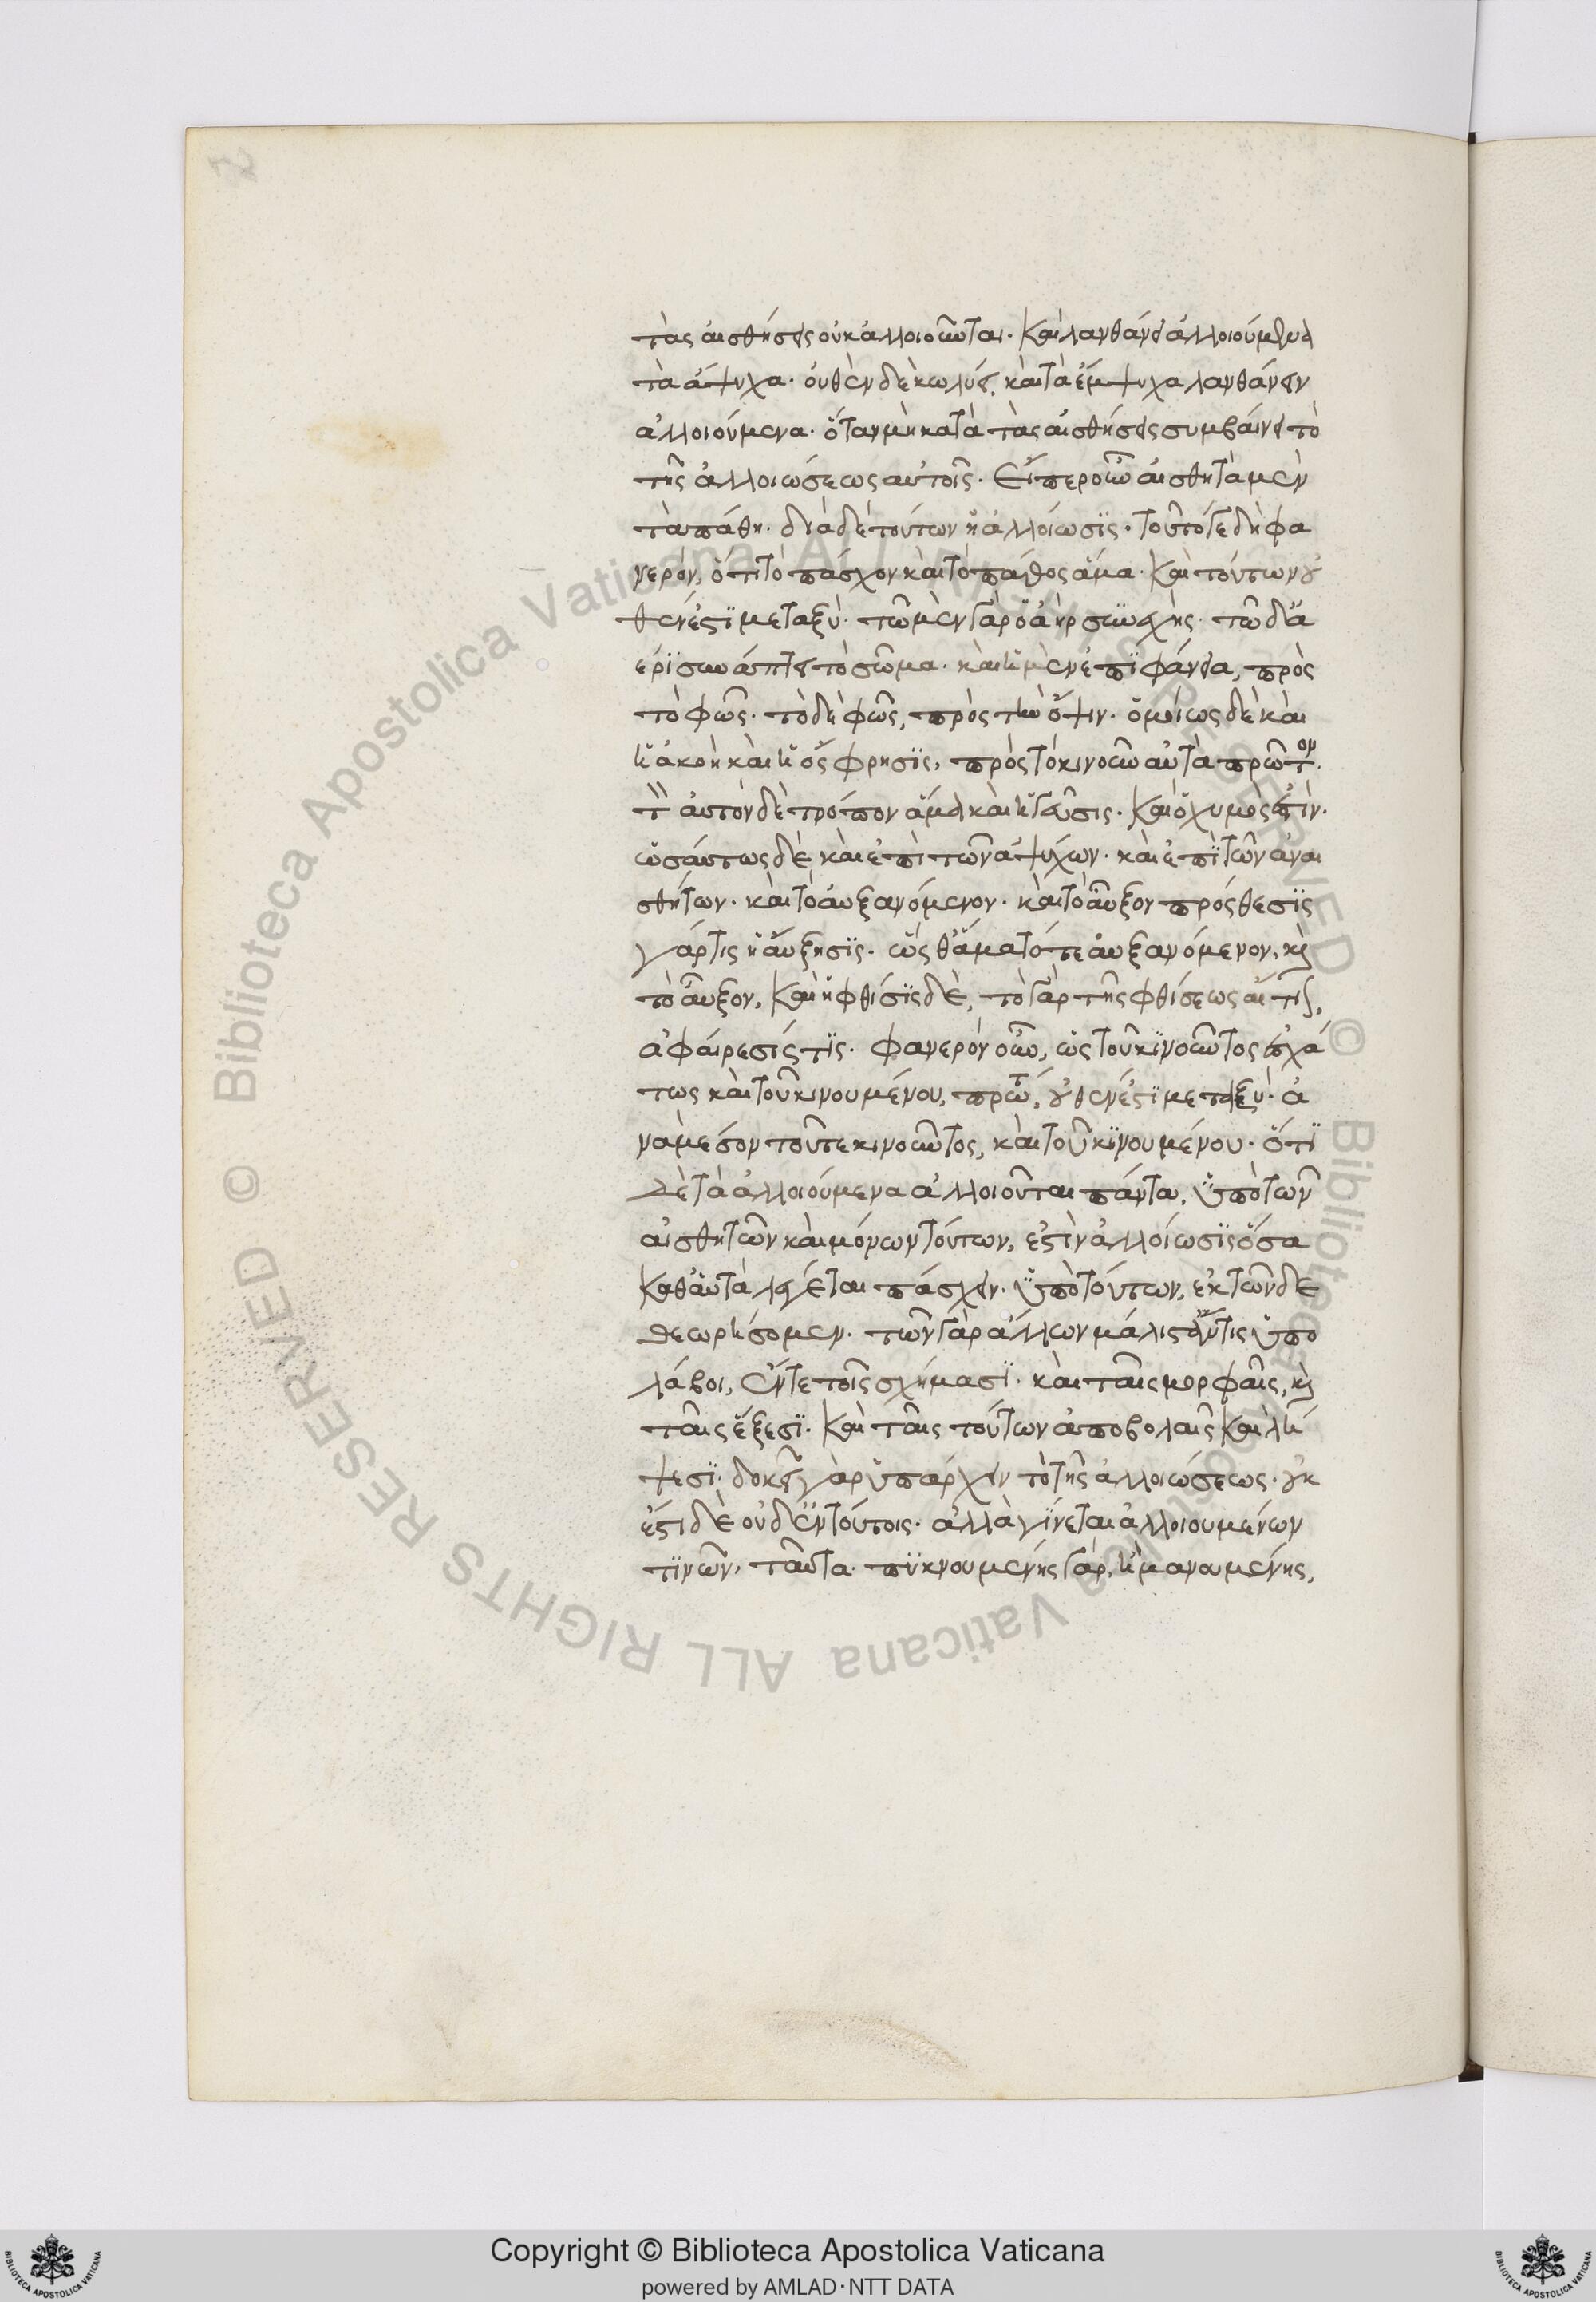 τὰς αισθήσεις ουκ αλλοιοῦται. Καὶ λανθάνει αλλοιούμενα
τὰ άψυχα. ουθὲν δὲ κωλύει, καὶ τὰ έμψυχα λανθάνειν
αλλοιούμενα. όταν μὴ κατὰ τὰς αισθήσεις συμβαίνει τὸ
τῆς αλλοιώσεως αυτοῖς. Είπερ οῦν αισθητὰ μὲν
τὰ πάθη. διὰ δὲ τούτων η αλλοίωσϊς. Τοῦτό γε δὴ φα
νερὸν, ότι τὸ πάσχον καὶ τὸ πάθος άμα. Καὶ τούτων ου
θὲν έστϊ μεταξύ. τῶ μὲν γὰρ ο αὴρ συνεχὴς. τῶ δ' ά
ερϊ συνάπτει τὸ σῶμα. καὶ η μὲν επϊφάνεια, πρὸς
τὸ φῶς. τὸ δὲ φῶς, πρὸς τὴν όψιν. ομοίως δὲ καὶ
η ακοὴ καὶ η όσφρησϊς, πρὸς τὸ κινοῦν αυτὰ πρῶτον.
Τὸν αυτὸν δὲ τρόπον άμα καὶ η γεῦσις. Καὶ ο χυμὸς εστίν.
ωσάυτως δὲ καὶ επὶ τῶν αψύχων. καὶ επϊ τῶν αναι
σθήτων. καὶ τὸ αυξανόμενον. καὶ τὸ αῦξον πρόσθεσϊς
γάρ τις η αύξησϊς. ὥς θ' άμα τό τε αυξανόμενον, καὶ
τὸ αῦξον, Καὶ η φθίσϊς δὲ, τὸ γὰρ τῆς φθίσεως αίτιον,
αφαίρεσίς τϊς. φανερὸν οῦν, ως τοῦ κϊνοῦντος εσχά
τως καὶ τοῦ κινουμένου, πρώτου, ουθὲν έστϊ μεταξὺ. α
ναμέσον τοῦ τε κινοῦντος, καὶ τοῦ κϊνουμένου. ότϊ
δὲ τὰ αλλοιούμενα αλλοιοῦται πάντα, ϋπὸ τῶν
αισθητῶν καὶ μόνων τούτων, εστὶν αλλοίωσϊς όσα
Καθ' αυτὰ λέγεται πάσχειν. ϋπὸ τούτων, εκ τῶνδε
θεωρήσομεν. τῶν γὰρ άλλων μάλιστ' άν τις ϋπο
λάβοι, έν τε τοῖς σχήμασϊ. καὶ ταῖς μορφαῖς, καὶ
ταῖς έξεσϊ. Καὶ ταῖς τούτων αποβολαῖς Καὶ λή
ψεσϊ. δοκεῖ γὰρ ϋπάρχειν τὸ τῆς αλλοιώσεως. ουκ
έστι δὲ ουδ' εν τούτοις. αλλὰ γϊνεται αλλοιουμένων
τϊνῶν, ταῦτα. πϋκνουμένης γὰρ, ἢ μανουμένης,
Copyright © Biblioteca Apostolica Vaticana
powered by AMLAD·NTT DATA